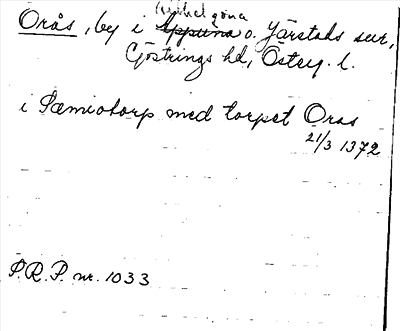 Orås, by i Appuna o. Järstads snr,
Göstrings hd, Österg. l.
i Sæmiotorp med torpet Oras
21/3 1372
P.R.P. nr. 1033